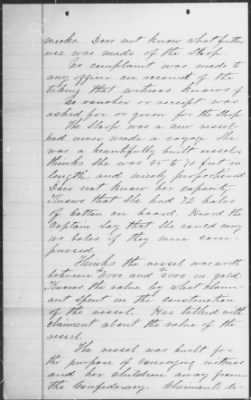 weeks. Does not know what further
use was made of the Sloop.
No complaint was made to
any officer on account of the
taking that witness knows of
No voucher or receipt was
asked for or given for the Sloop
The Sloop was a new vessel
had never made a voyage. She
was a beautifully built vessel
thinks she was 65 to 70 feet in
length and nicely proportioned
Does not know her capacity.
Knows that she had 72 bales
of cotton on board. Heard the
Captain say that she could carry
bales if they were com-
pressed.
Thinks the vessel was worth
between and in gold.
Knows the value by what claim-
ant spent in the construction
of the vessel. Has talked with
claimant about the value of the
vessel.
The vessel was built for
the purpose of conveying witness
and her children away from
the Confederacy. Claimants de-